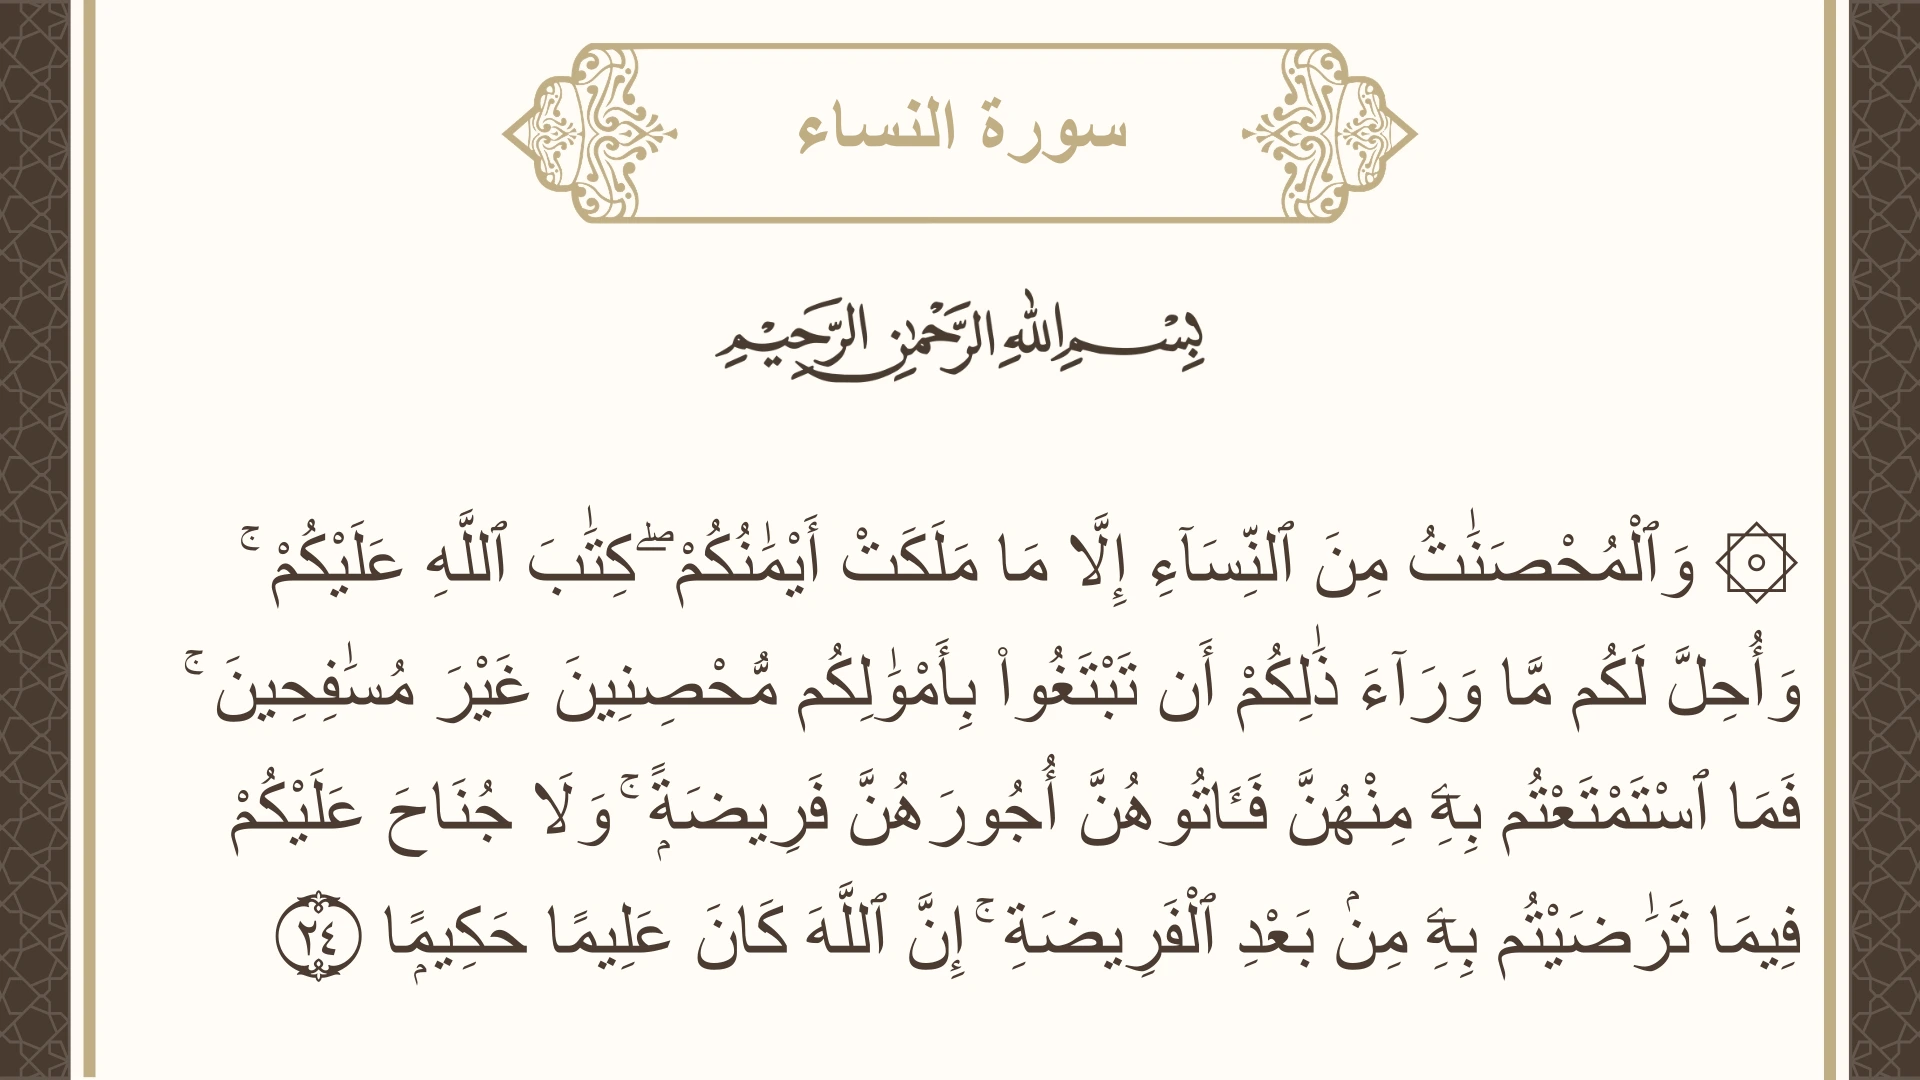 سورة النساء
بِسْمِ اللهِ الرَّحْمٰنِ الرَّحِيْمِ
۞ وَٱلْمُحْصَنَـٰتُ مِنَ ٱلنِّسَآءِ إِلَّا مَا مَلَكَتْ أَيْمَـٰنُكُمْ ۖ كِتَـٰبَ ٱللَّهِ عَلَيْكُمْ ۚ
وَأُحِلَّ لَكُم مَّا وَرَآءَ ذَٰلِكُمْ أَن تَبْتَغُوا۟ بِأَمْوَٰلِكُم مُّحْصِنِينَ غَيْرَ مُسَـٰفِحِينَ ۚ
فَمَا ٱسْتَمْتَعْتُم بِهِۦ مِنْهُنَّ فَـَٔاتُوهُنَّ أُجُورَهُنَّ فَرِيضَةًۭ ۚ وَلَا جُنَاحَ عَلَيْكُمْ
فِيمَا تَرَٰضَيْتُم بِهِۦ مِنۢ بَعْدِ ٱلْفَرِيضَةِ ۚ إِنَّ ٱللَّهَ كَانَ عَلِيمًا حَكِيمًۭا ٢٤